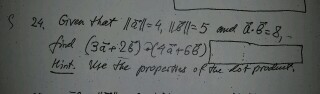 24. Given that ||a⃗||=4, ||b⃗||=5 and a⃗·b⃗=8,
find (3a⃗+2b⃗)·(4a⃗+6b⃗)
Hint. Use the properties of the dot product.